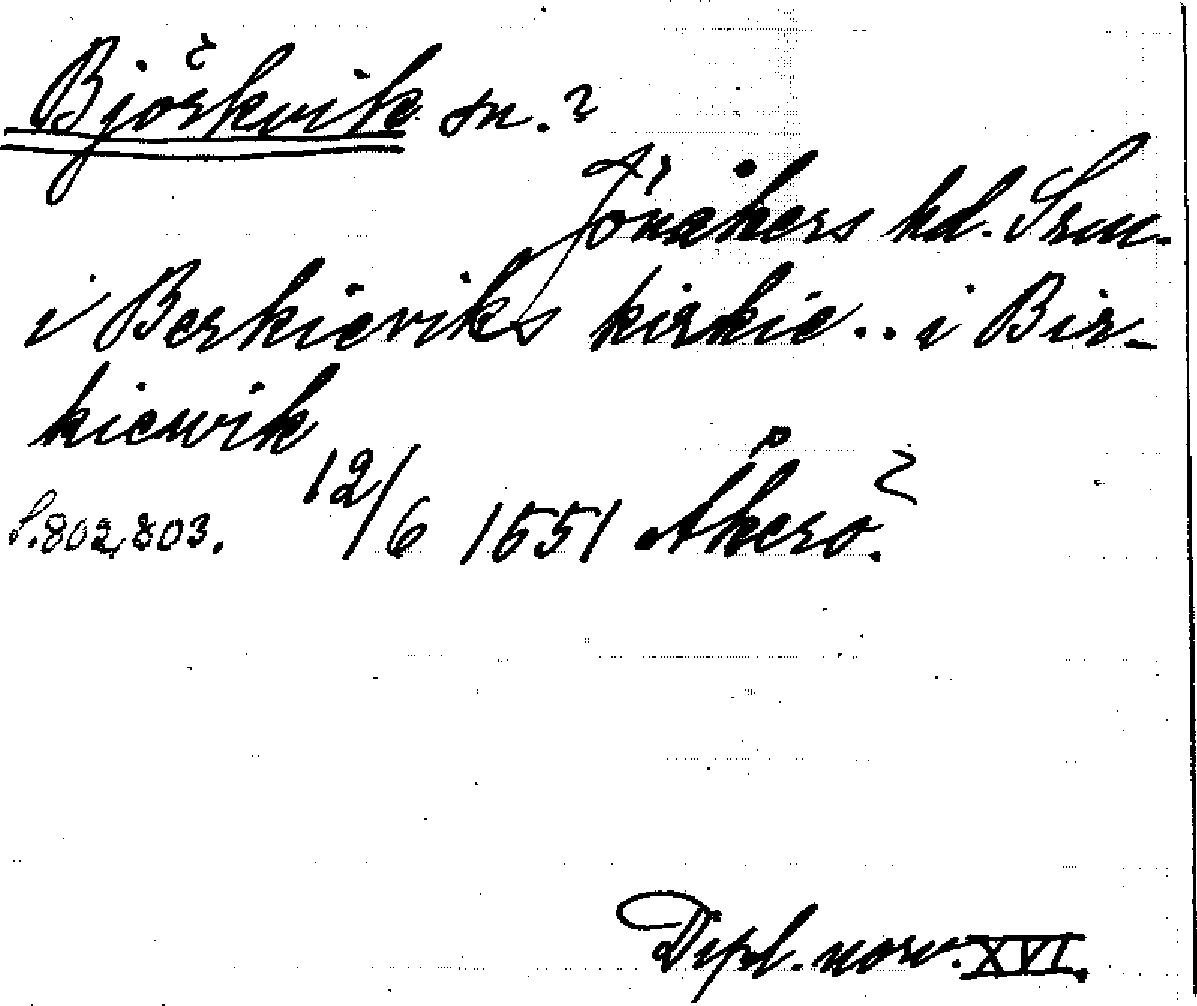 Björkvik sn.?
Jönåkers hd. Srm.
i Berkieviks kirkie.. i Bir-
kiewik
S. 802, 803. 12/6 1551 Åkerö?
Dipl. norv. XVI.